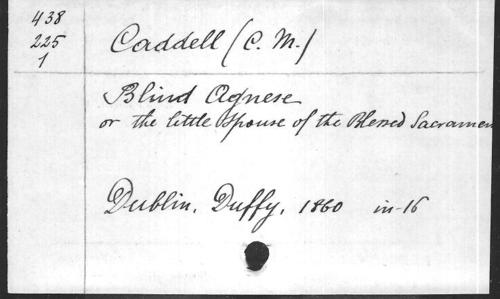 438
225
1
Caddell (C. M.)
Blind Agnese
or the little Spouse of the Blessed Sacramen
Dublin, Duffy, 1860 in-16